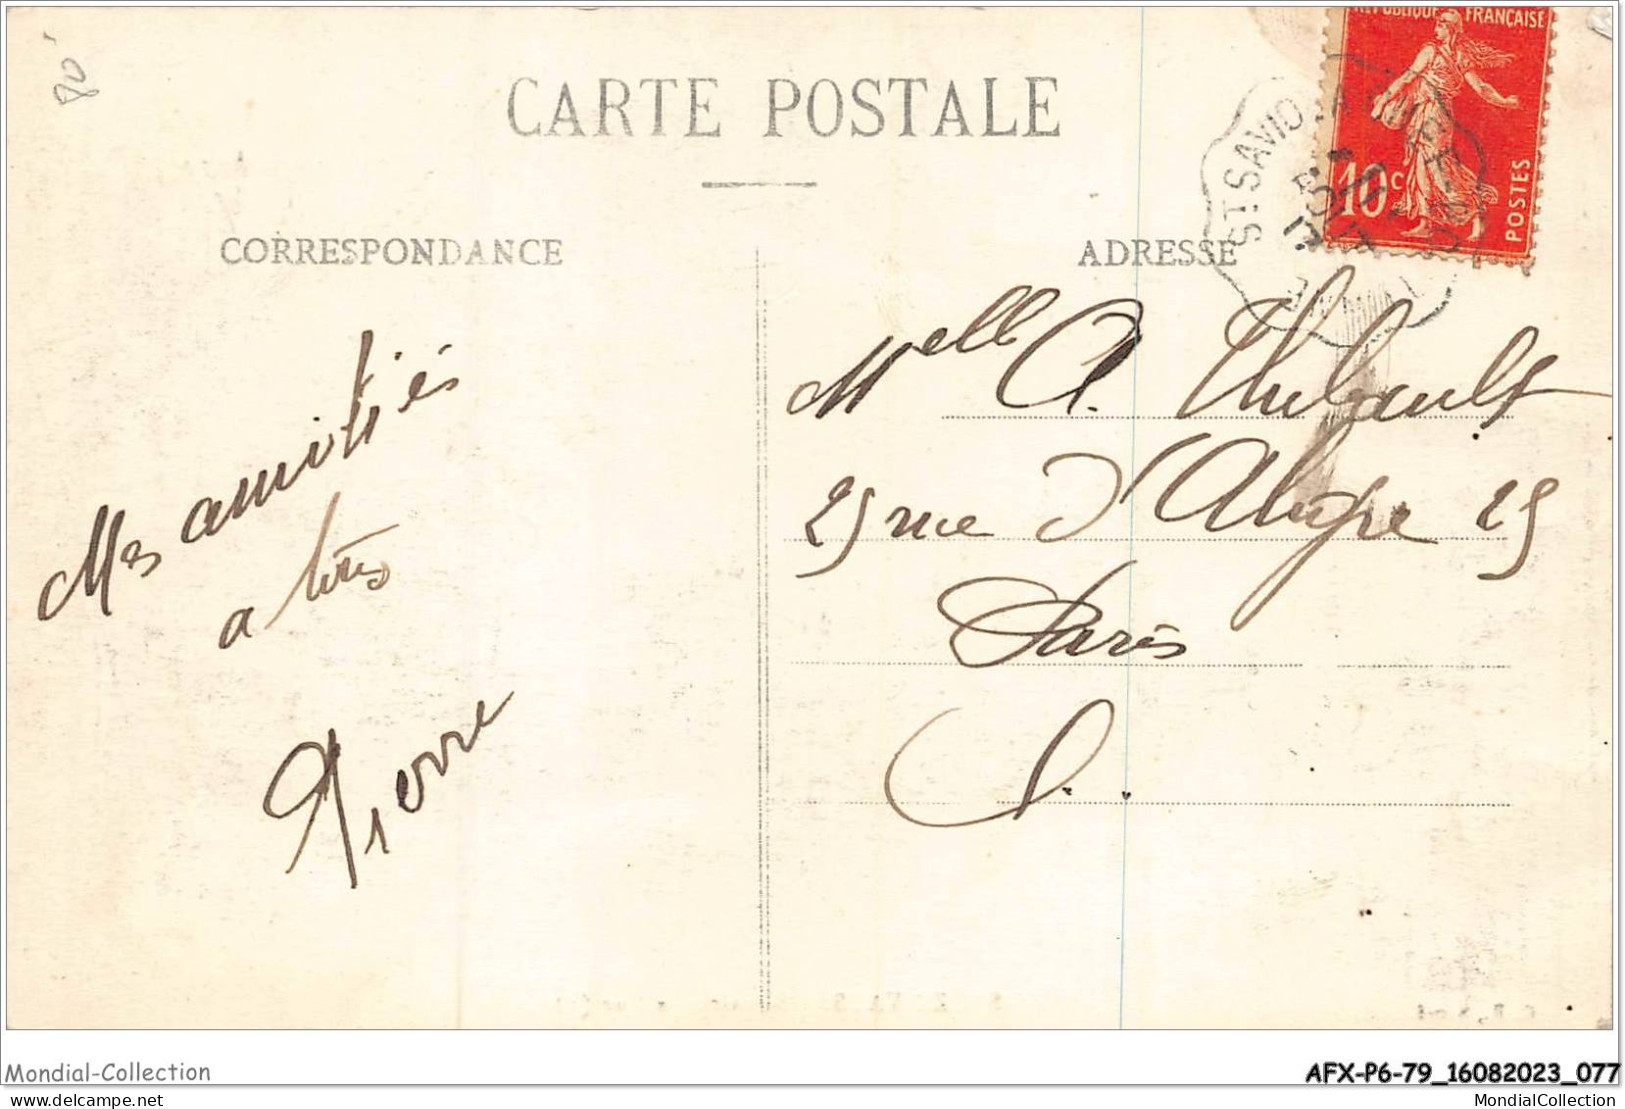 80
CARTE POSTALE
CORRESPONDANCE
ADRESSE
RÉPUBLIQUE FRANÇAISE
10c
POSTES
ST. SAVIO
Mes amitiés
a tous
Pierre
Melle A. Thibault
25 rue d'
25
Paris
Mondial-Collection
AFX-P6-79_16082023_077
delcampe.net
MondialCollection